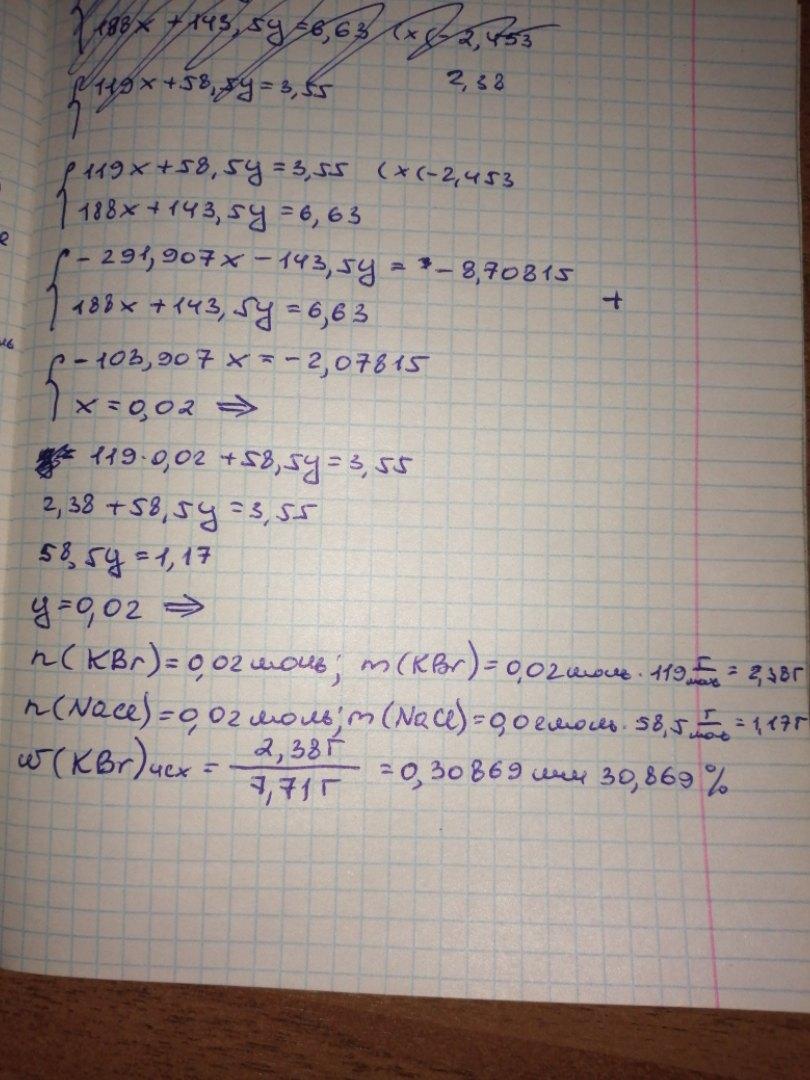 188x + 143,5y = 6,63 (x(-2,453
119x + 58,5y = 3,55 2,38
119x + 58,5y = 3,55 (x(-2,453
188x + 143,5y = 6,63
- 291,907x - 143,5y = - 8,70815
+
188x + 143,5y = 6,63
- 103,907x = - 2,07815
x = 0,02 ⇒
119·0,02 + 58,5y = 3,55
2,38 + 58,5y = 3,55
58,5y = 1,17
y = 0,02 ⇒
n(KBr) = 0,02 моль; m(KBr) = 0,02 моль · 119 г/моль = 2,38г
n(NaCl) = 0,02 моль; m(NaCl) = 0,02 моль · 58,5 г/моль = 1,17г
w(KBr)исх = 2,38г / 7,71г = 0,30869 или 30,869 %